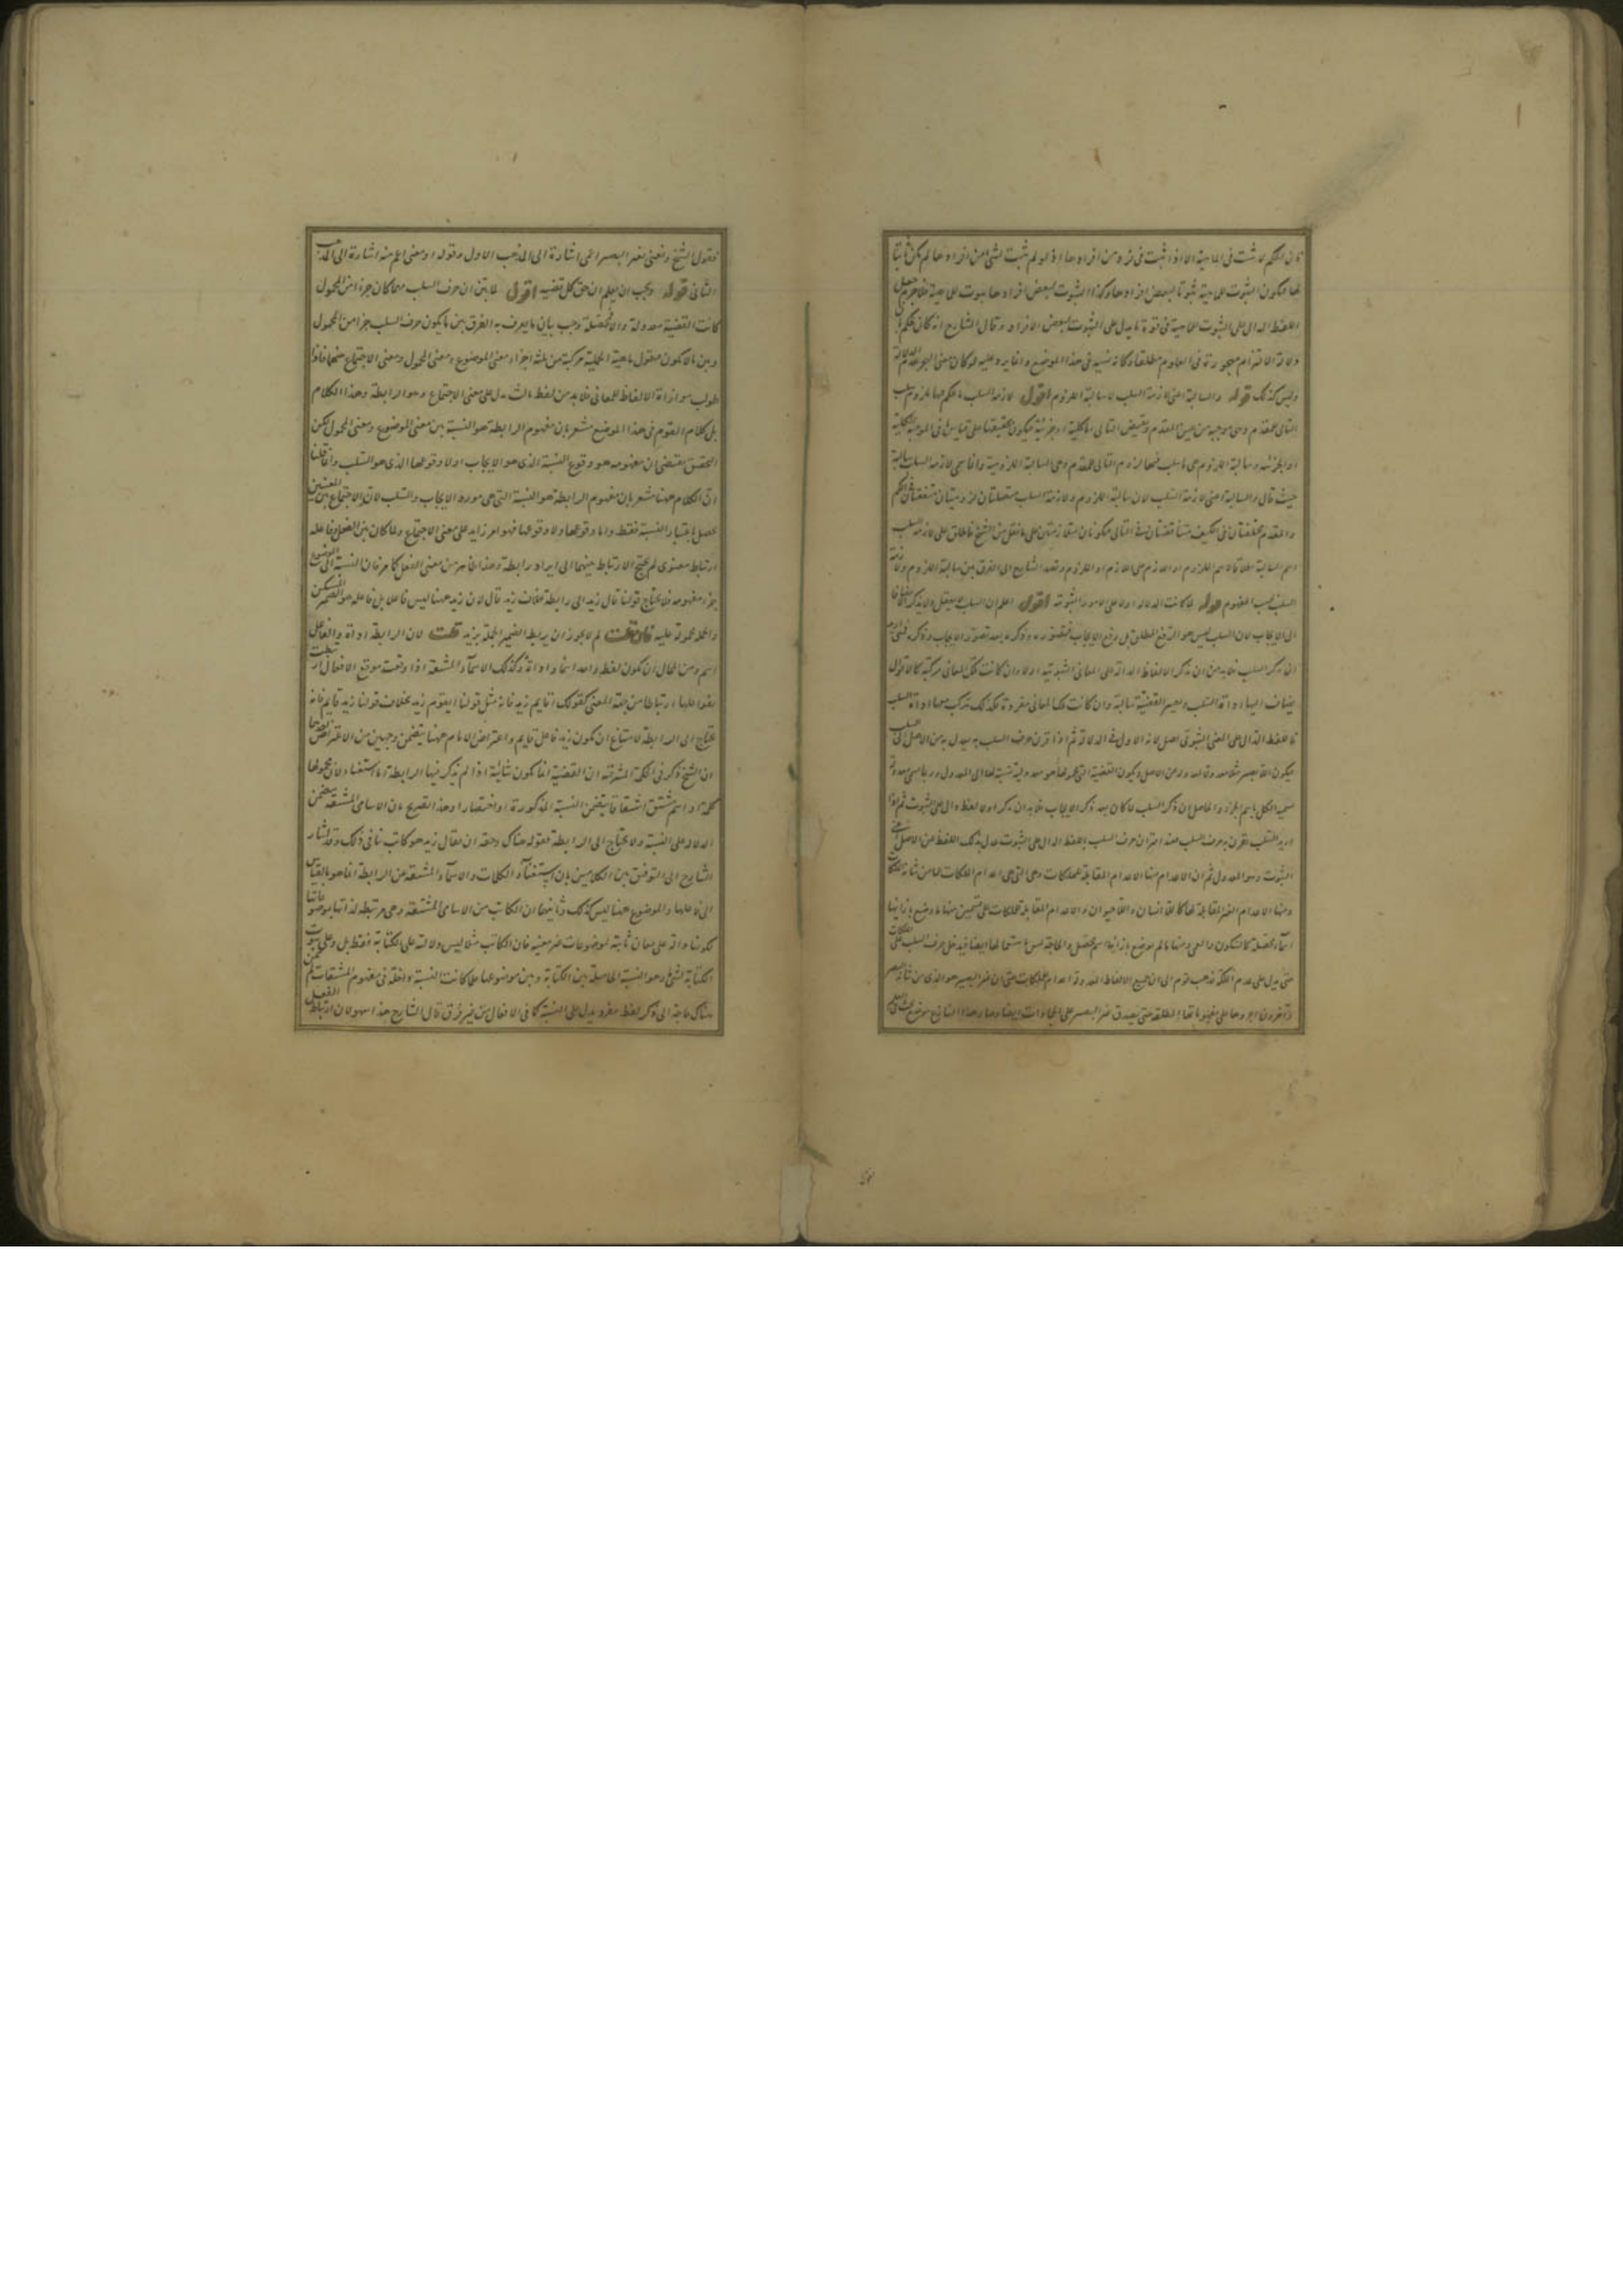 فان الحكم لا يثبت فى الماهية الا اذا ثبت فى فرد من افرادها اذ لو لم يثبت لشئ من افرادها لم يكن ثابتا
لها فيكون الثبوت للماهية ثبوتا لبعض افرادها وكذا الثبوت لبعض افرادها ثبوت للماهية
اللفظ الدال على الثبوت للماهية فى قوة ما يدل على الثبوت لبعض الافراد وقال الشارح
دلالة الالتزام مهجورة فى العلوم مطلقا وكانه نسيه فى هذا الموضع
وليس كذلك قوله والسالبة اعنى لازمة السلب لا سالبة اللزوم اقول لازمة السلب ما حكم فيها بلزوم سلب
التالى للمقدم وهى موجبة من عين المقدم ونقيض التالى
او الجزئية وسالبة اللزوم هى ما سلب فيها لزوم التالى للمقدم وهى السالبة اللزومية وانما سمى لازمة السلب سالبة
حيث قال والسالبة اعنى لازمة السلب لان سالبة اللزوم ولازمة السلب متصلتان لزوميتان متفقتان فى الكم
والمقدم مختلفتان فى الكيف متناقضتان فى التالى فيكونان متلازمتين على ما نقل من الشيخ فاطلق على لازمة السلب
اسم السالبة اطلاقا لاسم الملزوم او اللازم على اللازم او الملزوم وقصد الشارح الى الفرق بين سالبة اللزوم ولازمة
السلب بحسب المفهوم قوله لما كانت الدلالة اولا على الامور الثبوتية اقول اعلم ان السلب لا يعقل ولا يذكر
الى الايجاب لان السلب ليس هو الرفع المطلق بل رفع الايجاب فتصوره وذكره بعد تصور الايجاب وذكره
ان يذكر السلب فلا بد من ان يذكر الالفاظ الدالة على المعانى الثبوتية اولا وان كانت تلك المعانى مركبة
يضاف اليها اداة السلب وتصير القضية سالبة وان كانت تلك المعانى مفردة فكذلك تركب معها اداة السلب
فاللفظ الدال على المعنى الثبوتى اصل لانه الاول فى الدلالة ثم اذا قرن حرف السلب به يعدل به من الاصل الى
فيكون اللابصير مثلا معدولا
سمية الكل باسم الجزء والحاصل ان ذكر السلب لما كان بعد ذكر الايجاب فلا بد ان يذكر اولا لفظ دال على الثبوت ثم اذا
اريد السلب يقرن به حرف السلب فعند اقتران حرف السلب باللفظ الدال على الثبوت عدل بذلك اللفظ عن الاصل
الثبوت وهو المعدول ثم ان الاعدام منها الاعدام المقابلة للملكات وهى التى هى اعدام الملكات
ومنها الاعدام الغير المقابلة لها كاللاانسان واللاحيوان والاعدام المقابلة للملكات على قسمين منها ما وضع بازائها
اسماء محصلة كالسكون والعمى ومنها ما لم يوضع بازائها اسم محصل
حتى يدل على عدم الملكة وذهب قوم الى ان جميع الالفاظ المعدولة اعدام للملكات حتى ان غير البصير هو الذى من شانه البصر
وآخرون اجروها على مفهوماتها المطلقة حتى يصدق غير البصير على الجمادات ايضا
فقول الشيخ ونعنى بغير البصير الاعمى اشارة الى المذهب الاول وقوله او معنى اعم منه اشارة الى المذهب
الثانى قوله ويجب ان يعلم ان حق كل قضية اقول لما بين ان حرف السلب مهما كان جزءا من المحمول
كانت القضية معدولة والا فمحصلة وجب بيان ما يعرف به الفرق بين ما يكون حرف السلب جزءا من المحمول
وبين ما لا يكون فنقول ماهية الحملية مركبة من ثلثة اجزاء معنى الموضوع ومعنى المحمول ومعنى الاجتماع بينهما فاذا
طولب موازاة الالفاظ للمعانى فلا بد من لفظ ثالث يدل على معنى الاجتماع وهو الرابطة وهذا الكلام
بل كلام القوم فى هذا الموضع مشعر بان مفهوم الرابطة هو النسبة بين معنى الموضوع ومعنى المحمول لكن
التحقيق يقتضى ان مفهومه هو وقوع النسبة الذى هو الايجاب اولا وقوعها الذى هو السلب وانما قلنا
ان الكلام ههنا مشعر بان مفهوم الرابطة هو النسبة التى هى مورد الايجاب والسلب لان الاجتماع بين المعنيين
يحصل باعتبار النسبة فقط واما وقوعها ولا وقوعها فهو امر زايد على معنى الاجتماع ولما كان بين الفعل وفاعله
ارتباط معنوى لم يحتج الارتباط بينهما الى ايراد رابطة وهذا ظاهر من معنى الفعل كما مر فان النسبة الى الموضوع
جزء مفهومه فلا يحتاج قولنا قال زيد الى رابطة بخلاف زيد قال لان زيد ههنا ليس فاعلا بل فاعله هو الضمير المستكن
والجملة محمولة عليه فان قلت لم لا يجوز ان يربط الضمير الجملة بزيد قلت لان الرابطة اداة والفاعل
اسم ومن المحال ان يكون لفظ واحد اسما واداة وكذلك الاسماء المشتقة اذا وقعت موقع الافعال ارتبطت
بفواعلها ارتباطا من جهة المعنى كقولك أقايم زيد فانه مثل قولنا ايقوم زيد بخلاف قولنا زيد قايم فانه
يحتاج الى الرابطة لامتناع ان يكون زيد فاعل قايم واعتراض الامام ههنا يتضمن وجهين من الاعتراض احدهما
ان الشيخ ذكر فى الحكمة المشرقية ان القضية انما يكون ثنائية اذا لم يذكر فيها الرابطة اما استغناء لان محمولها
كلمة او اسم مشتق اشتقاقا يتضمن النسبة المذكورة او اختصارا وهذا تصريح بان الاسامى المشتقة يتضمن
الدلالة على النسبة ولا يحتاج الى الرابطة فقوله هناك وحقه ان يقال زيد هو كاتب ينافى ذلك وقد اشار
الشارح الى التوفيق بين الكلامين بان استغناء الكلمات والاسماء المشتقة عن الرابطة انما هو بالقياس
الى فاعلها والموضوع ههنا ليس كذلك وثانيهما ان الكاتب من الاسامى المشتقة وهى مرتبطة لذاتها بموضوعاتها
لكونها دالة على معان ثابتة لموضوعات غير معينة فان الكاتب مثلا ليس دلالته على الكتابة فقط بل وعلى ثبوت
الكتابة لشئ وهو النسبة الحاصلة بين الكتابة وبين موضوعها فلما كانت النسبة داخلة فى مفهوم المشتقات لم يكن
هناك حاجة الى ذكر لفظ مفرد يدل على النسبة كما فى الافعال من غير فرق قال الشارح هذا سهو لان ارتباط الفعل